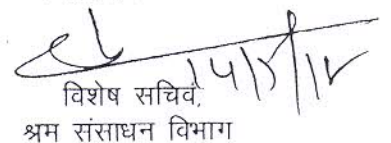 14/5/12
विशेष सचिव,
श्रम संसाधन विभाग